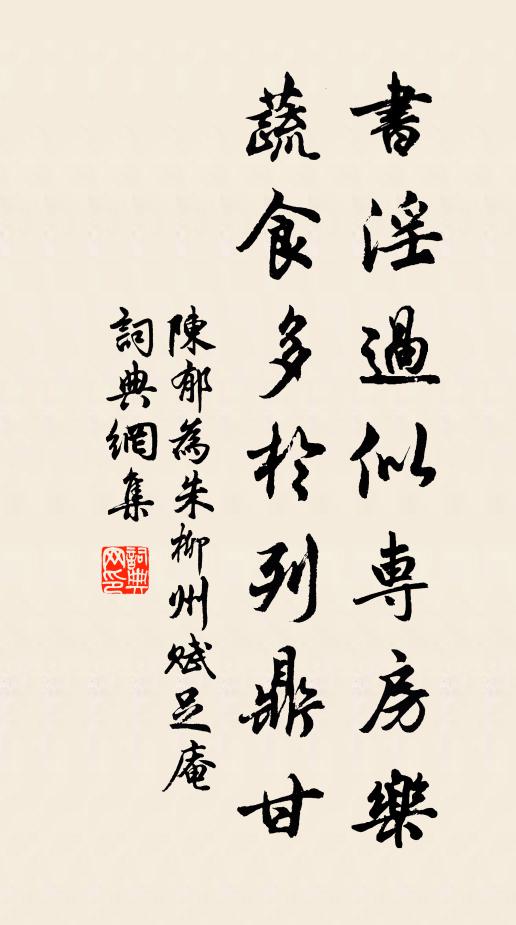 書淫過似專房樂
蔬食多於列鼎甘
陳郁為朱柳州賦足庵
詞典網集
詞典网印